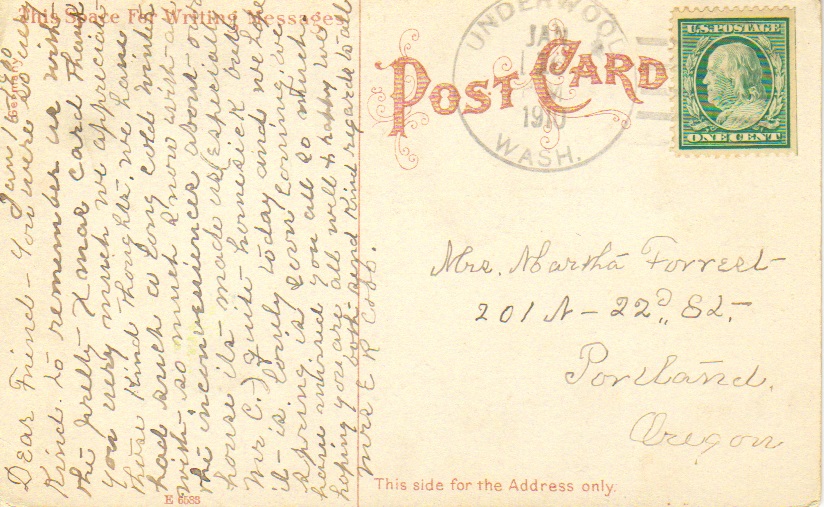 This Space For Writing Messages
Germany
Jan 1
Dear Friend - You were so very
Kind to remember us with
the pretty Xmas card Thank
you very much we appreciate
these Kind thoughts. we have
had such a long cold winter
with so much snow with all
the inconveniences about our
house its made us (especially
Mr C.) quite homesick but
it is lovely today and we hope
spring is soon coming we
have missed you all so much
hoping you are all well & happy we
both send Kind regards to all
Mrs E R Cobb.
POST CARD
UNDERWOOD
JAN
1910
WASH.
U.S. POSTAGE
ONE CENT
Mrs. Martha Forrest
201 N - 22d, St,
Portland,
Oregon
This side for the Address only.
E 6583